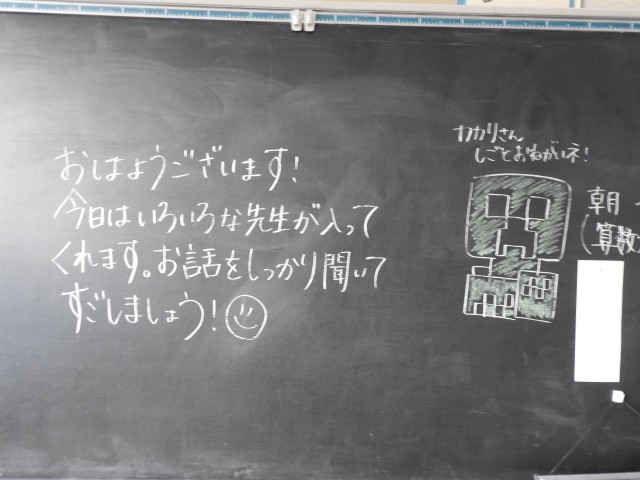 おはようございます!
今日はいろいろな先生が入って
くれます。お話をしっかり聞いて
すごしましょう!
カカリさん
しごとおねがいネ!
朝
(算数